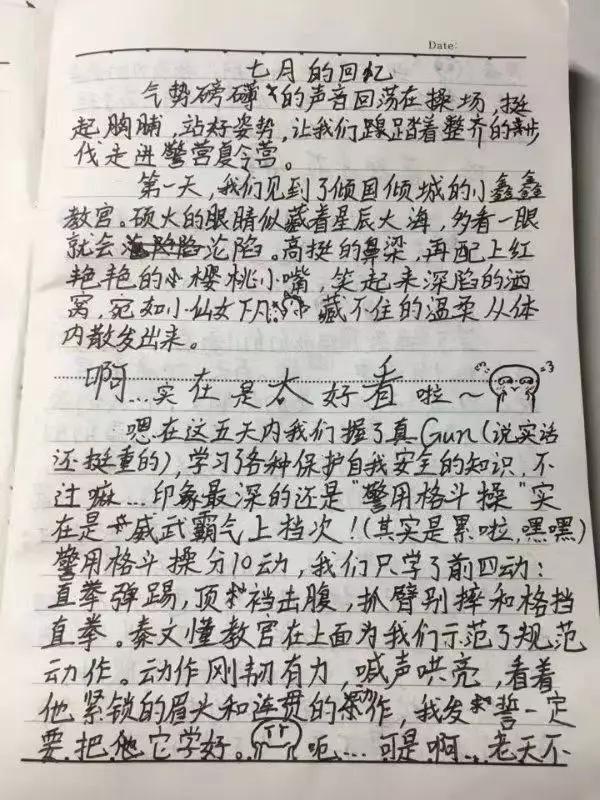 Date:
七月的回忆
气势磅礴的声音回荡在操场，挺
起胸脯，站好姿势，让我们踏着整齐的步
伐走进警营夏令营。
第一天，我们见到了倾国倾城的小鑫鑫
教官。硕大的眼睛似藏着星辰大海，多看一眼
就会沦陷。高挺的鼻梁，再配上红
艳艳的小樱桃小嘴，笑起来深陷的酒
窝，宛如小仙女下凡，藏不住的温柔从体
内散发出来。
啊…实在是太好看啦～
嗯在这五天内我们握了真Gun(说实话
还挺重的)，学习了各种保护自我安全的知识，不
过嘛…印象最深的还是"警用格斗操"实
在是威武霸气上档次！(其实是累啦，嘿嘿)
警用格斗操分10动，我们只学了前四动：
直拳弹踢，顶裆击腹，扒臂别摔和格挡
直拳。秦文懂教官在上面为我们示范了规范
动作。动作刚韧有力，喊声哄亮，看着
他紧锁的眉头和连贯的动作，我发誓一定
要把它学好。呃…可是啊，老天不